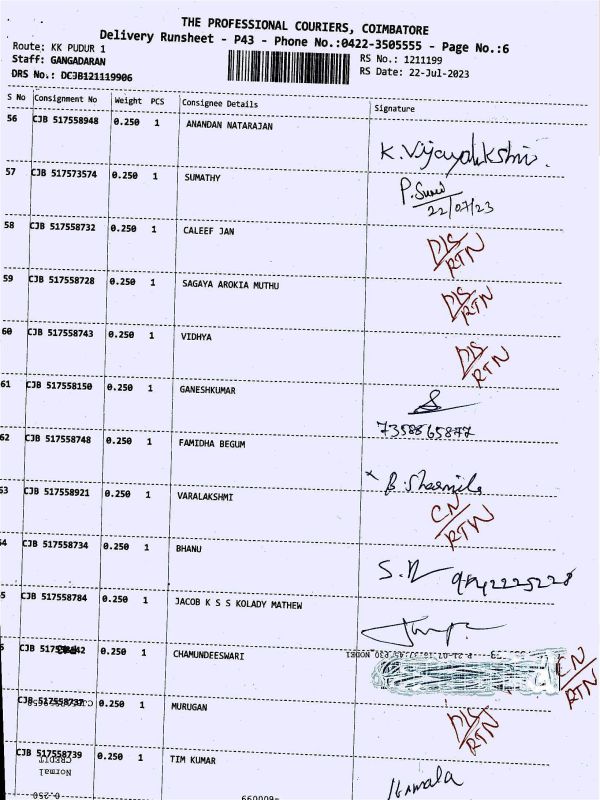 THE PROFESSIONAL COURIERS, COIMBATORE
Delivery Runsheet - P43 - Phone No.:0422-3505555 - Page No.:6
Route: KK PUDUR 1
Staff: GANGADARAN
DRS No.: DCJB121119906
RS No.: 1211199
RS Date: 22-Jul-2023
S No Consignment No Weight PCS Consignee Details Signature
56 CJB 517558948 0.250 1 ANANDAN NATARAJAN
K.Vijayalakshmi.
57 CJB 517573574 0.250 1 SUMATHY
22/07/23
58 CJB 517558732 0.250 1 CALEEF JAN
DIS
RTN
59 CJB 517558728 0.250 1 SAGAYA AROKIA MUTHU
DIS
RTN
60 CJB 517558743 0.250 1 VIDHYA
DIS
RTN
61 CJB 517558150 0.250 1 GANESHKUMAR
7358865877
62 CJB 517558748 0.250 1 FAMIDHA BEGUM
B.Sharmila
63 CJB 517558921 0.250 1 VARALAKSHMI
CN
RTN
54 CJB 517558734 0.250 1 BHANU
9842225228
5 CJB 517558784 0.250 1 JACOB K S S KOLADY MATHEW
CJB 0.250 1 CHAMUNDEESWARI
CN
RTN
CJB 517558737 0.250 1 MURUGAN
DIS
RTN
CJB 517558739 0.250 1 TIM KUMAR
CREDIT
Normal
0.250